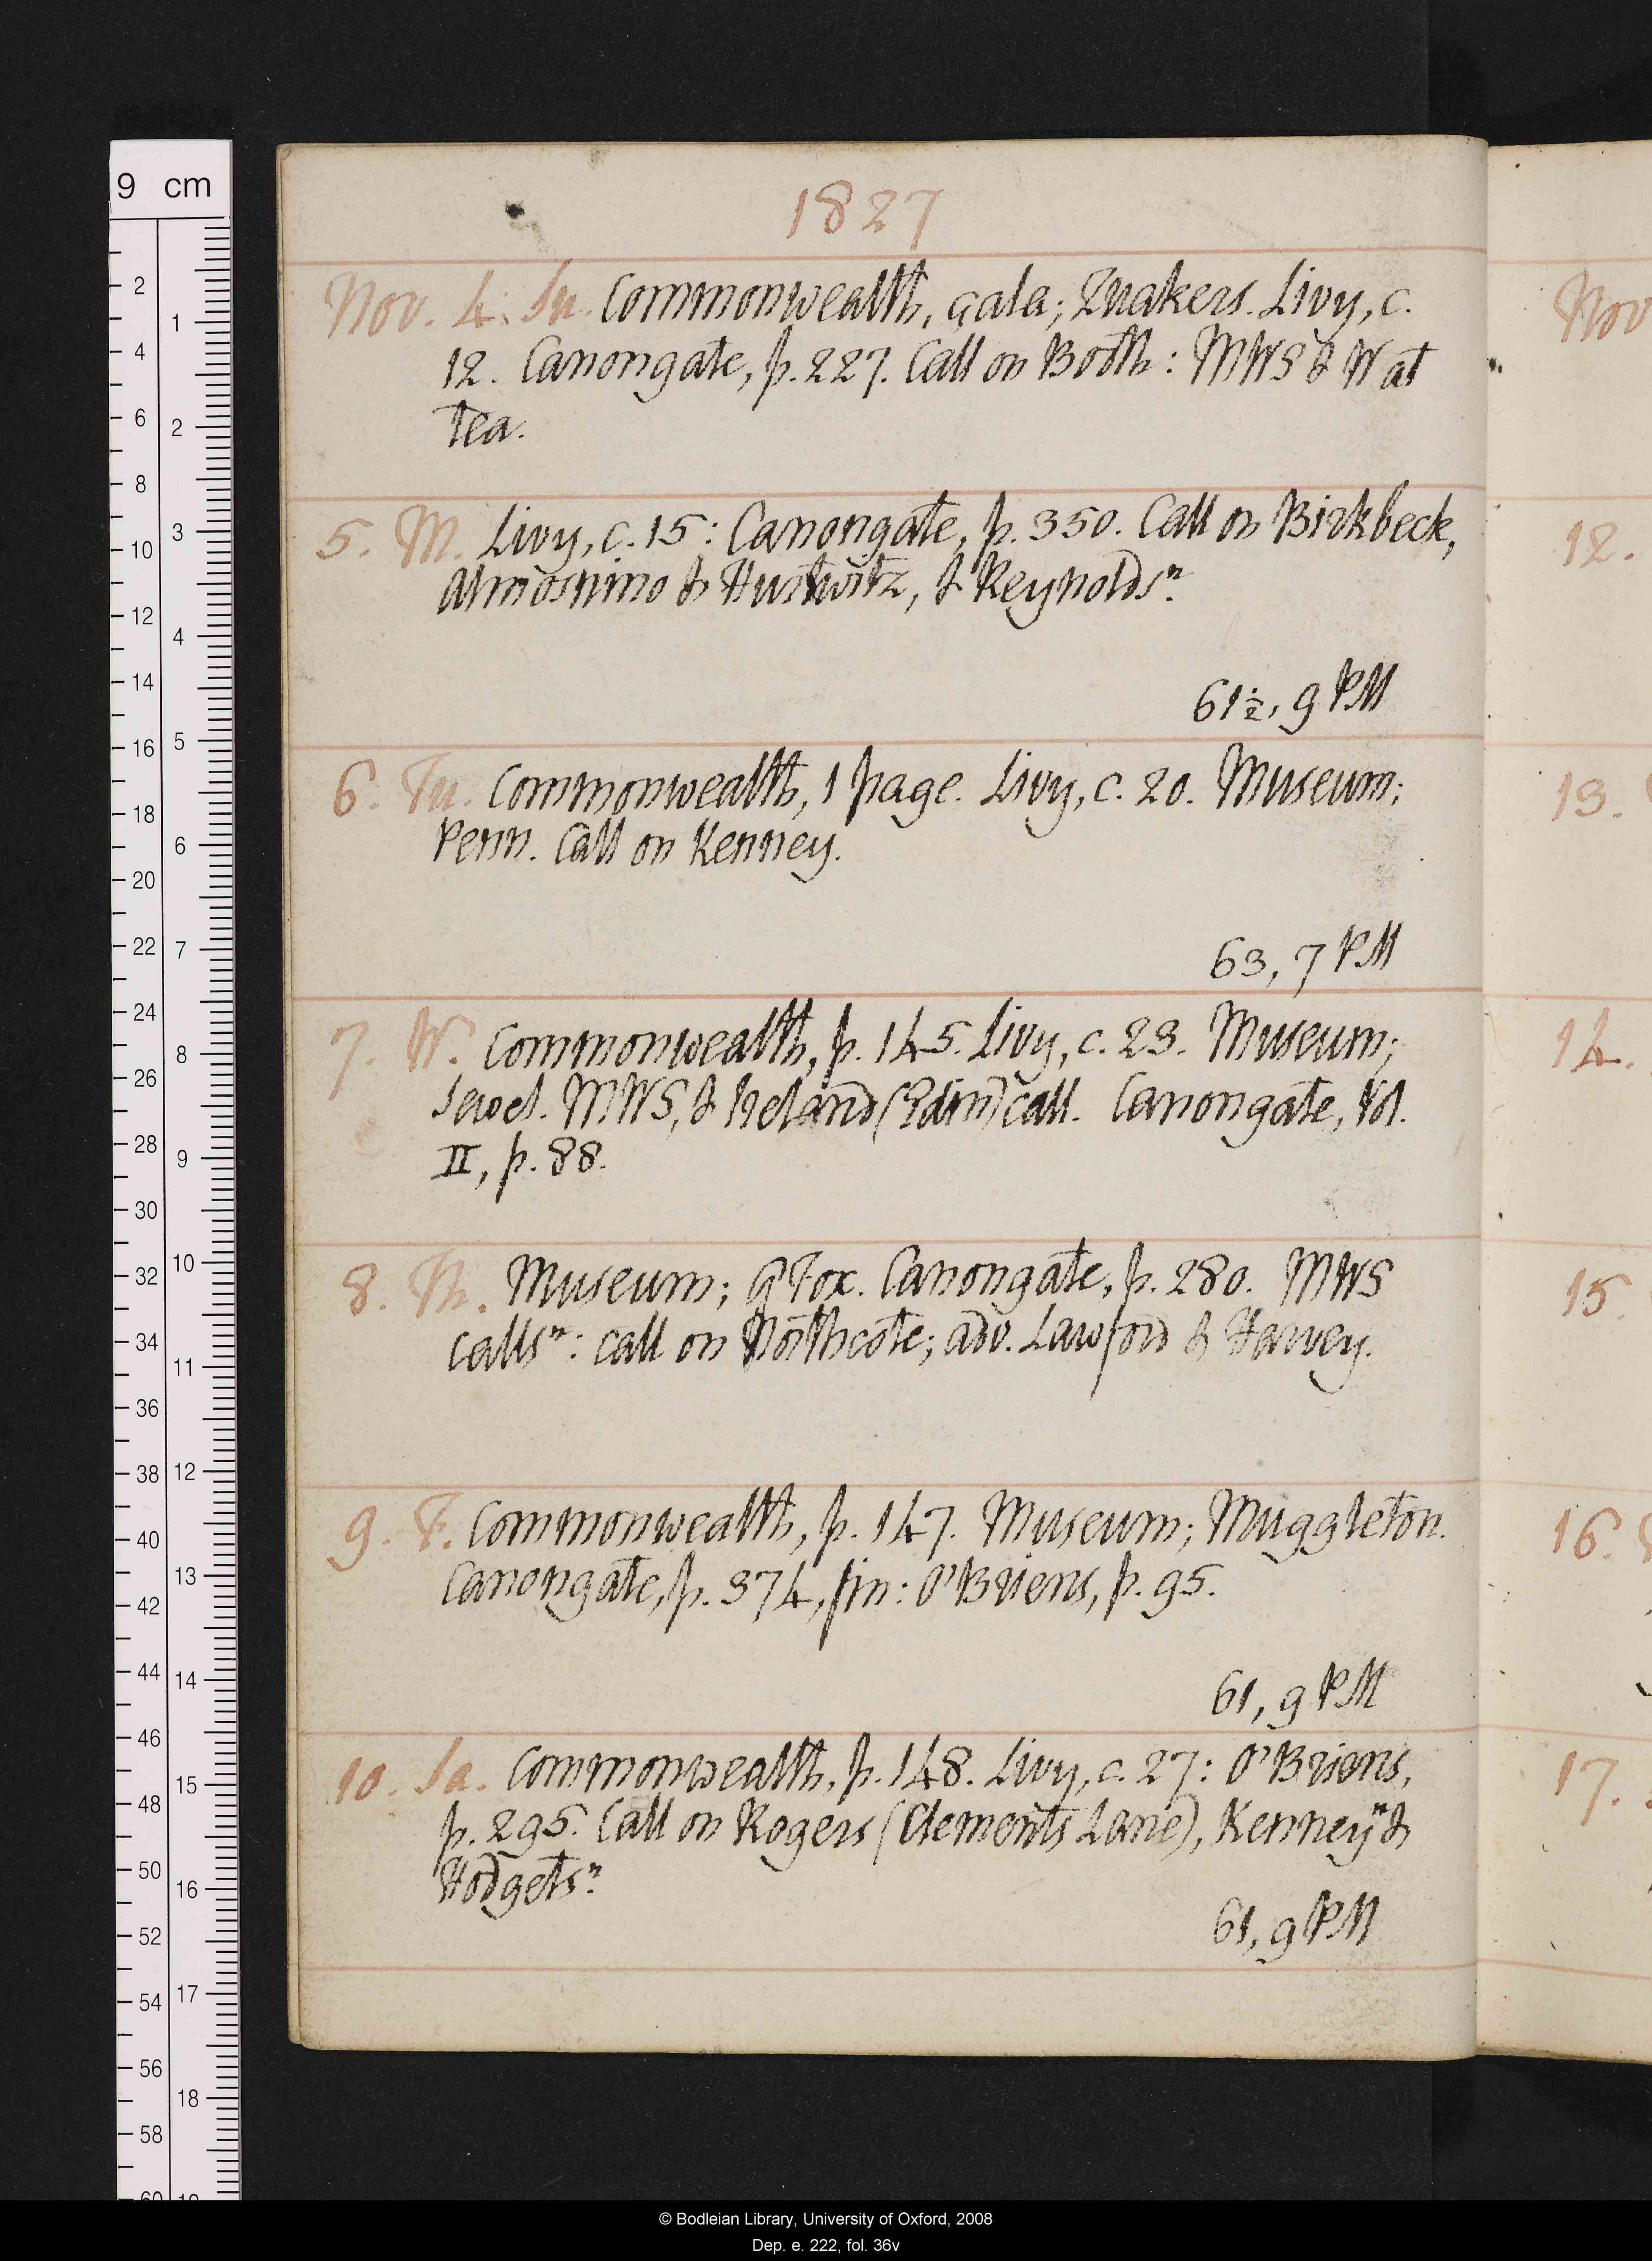 9 cm
1827
Nov. 4. Su. Commonwealth, çala; Quakers. Livy, c.
12. Canongate, p. 227. Call on Booth: MWS & W at
tea.
5. M. Livy, c. 15: Canongate, p. 350. Call on Birkbeck,
Almosnino & Hurwitz, & Reynolds n.
61½, 9 PM
6. Tu. Commonwealth, 1 page. Livy, c. 20. Museum;
Penn. Call on Kenney.
63, 7 PM
7. W. Commonwealth, p. 145. Livy, c. 23. Museum;
Sewel. MWS, & Ireland (Edin) call. Canongate, Vol.
II, p. 88.
8. Th. Museum; G Fox. Canongate, p. 280. MWS
calls n: call on Northcote; adv. Lawford & Harvey.
9. F. Commonwealth, p. 147. Museum; Muggleton.
Canongate, p. 374, fin: O'Briens, p. 95.
61, 9 PM
10. Sa. Commonwealth, p. 148. Livy, c. 27: O'Briens,
p. 295. Call on Rogers (Clements Lane), Kenney n &
Hodgets n.
61, 9 PM
Nov
12.
13.
14.
15.
16.
17.
© Bodleian Library, University of Oxford, 2008
Dep. e. 222, fol. 36v